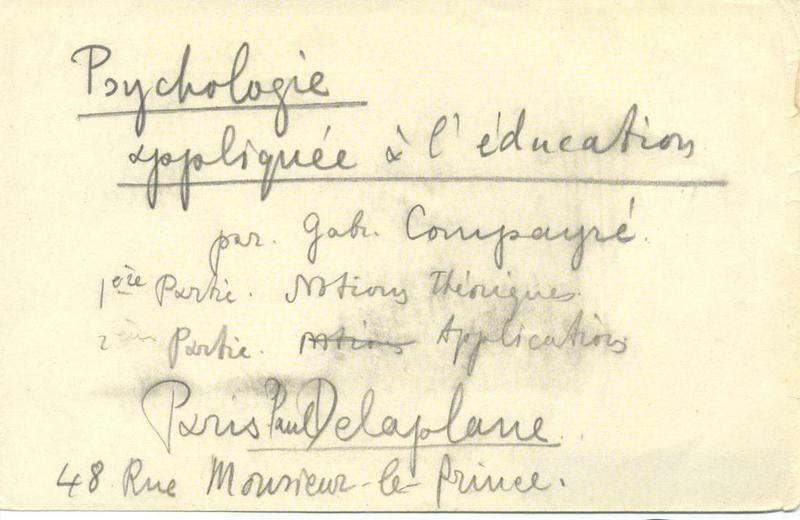 Psychologie
appliquée à l'éducation
par. Gabr. Compayré.
1ère Partie. Notions Théoriques.
2ème Partie. Notions Applications
Paris Paul Delaplane.
48 Rue Monsieur-le-Prince.